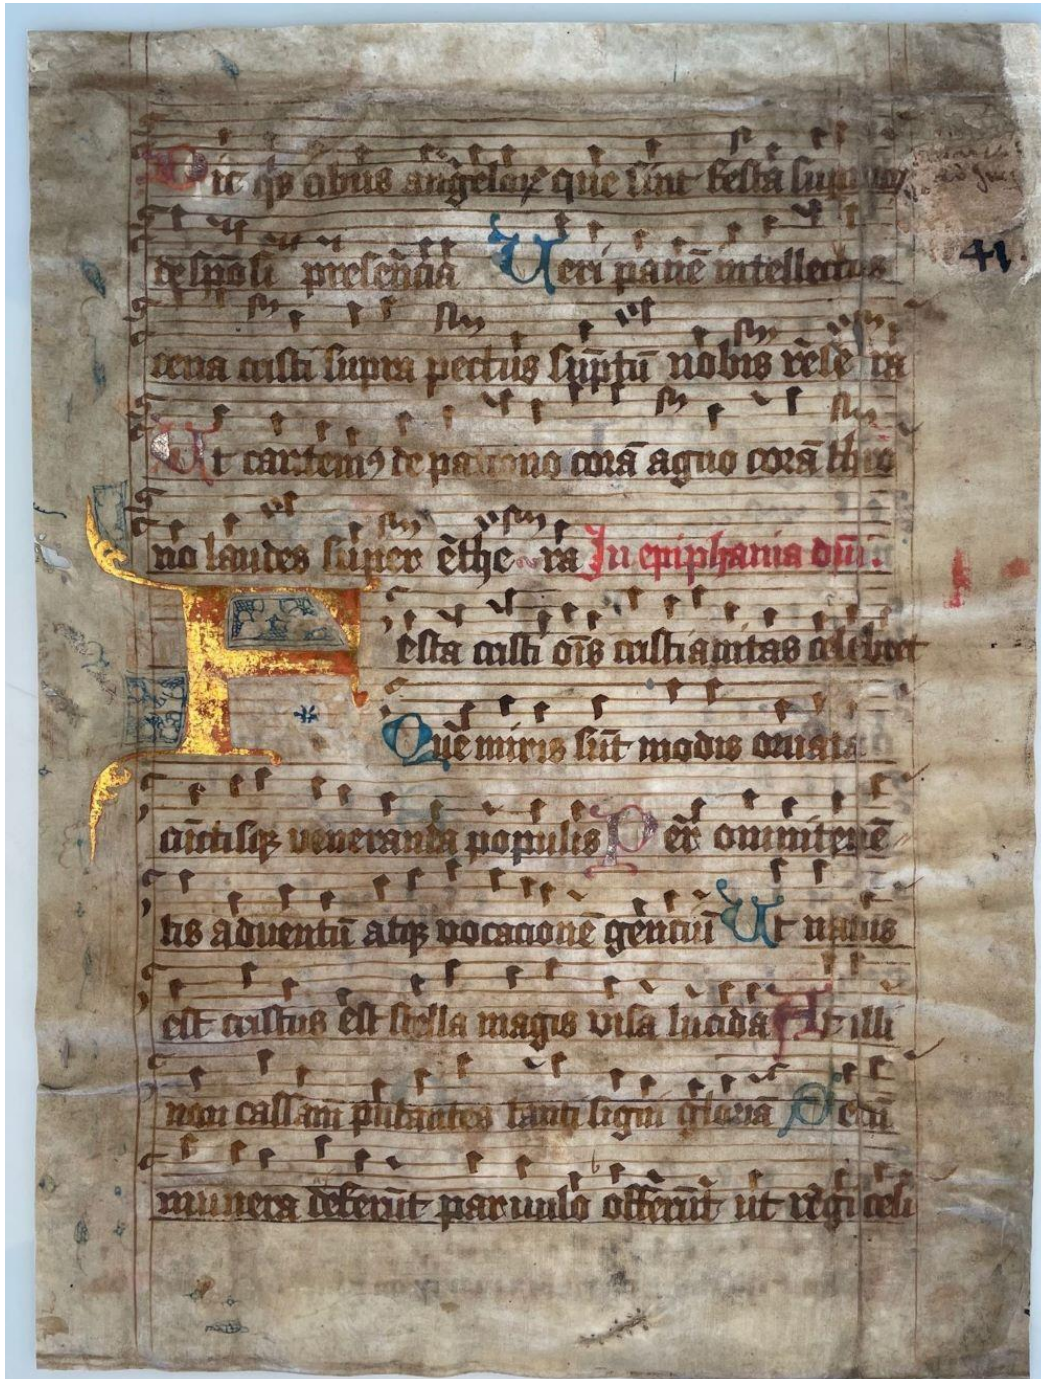 Dic q̄s cibus angelorꝝ que sint festa supnoꝝ
41
de sponsi presencia Ueri panē intellectus
cena cristi supra pectus sūptū nobis rese ra
Ut cantem⁹ de patrono corā agno corā thro
no laudes super ethe ra In epiphania dn̄i.
Festa cristi om̄s cristianitas celebret
Que miris sūt modis ornata
cūctisqꝫ veneranda populis Per omnitenē
tis adventū atqꝫ vocacionē genciū Ut natus
est cristus est stella magis visa lucida At illi
non cassam putantes tanti signi gloriā Secū
munera deferūt parvulo offerūt ut regi celi